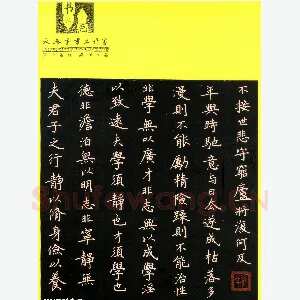 夫君子之行靜以脩身儉以養
德非澹泊無以明志非寧靜無
以致遠夫學須靜也才須學也
非學無以廣才非志無以成學淫
漫則不能勵精險躁則不能治性
年與時馳意與日去遂成枯落多
不接世悲守窮廬將復何及